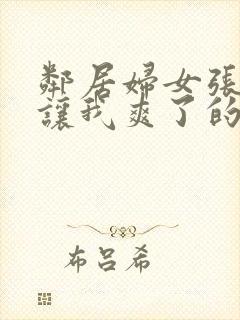 鄰居婦女張
讓我爽了的
布呂希